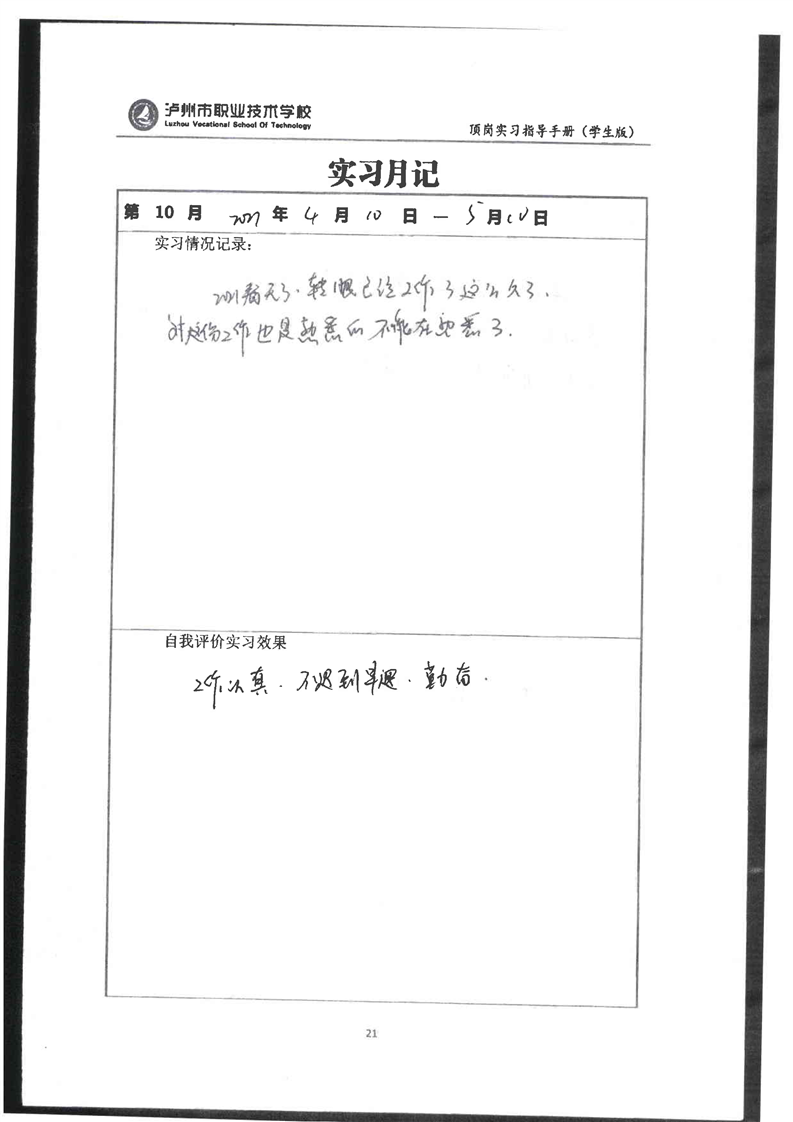 泸州市职业技术学校
Luzhou Vocational School Of Technology
顶岗实习指导手册（学生版）
实习月记
第 10 月 2021 年 4 月 10 日 — 5 月 10 日
实习情况记录：
2021春天了．转眼已经工作了这么久了．
对这份工作也是熟悉的不能在熟悉了．
自我评价实习效果
工作认真．不迟到早退．勤奋．
21